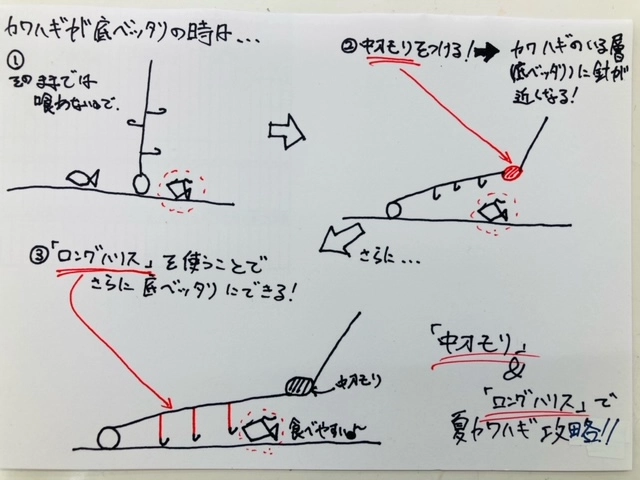 カワハギが底ベッタリの時は...
①
そのままでは
喰わないので、
②中オモリをつける!➡カワハギのいる層
(底ベッタリ)に針が
近くなる!
さらに...
③「ロングハリス」を使うことで
さらに底ベッタリにできる!
中オモリ
食べやすい〜
「中オモリ」
&
「ロングハリス」で
夏カワハギ攻略!!